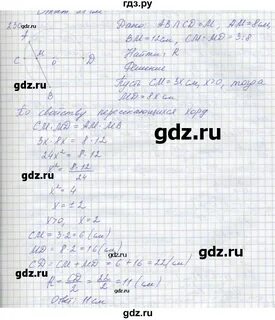 гдз.ру
Ответ: 24 см.
Дано: AB ∩ CD = M, AM = 8см,
BM = 12см, CM : MD = 3:8
Найти: R
Решение
Пусть CM = 3x см, x>0, тогда
MD = 8x см
A
M
C
O
D
B
По свойству пересекающихся хорд
CM · MD = AM · MB
3x · 8x = 8 · 12
24x² = 8 · 12
x² = 8 · 12 / 24
x² = 4
x = ± 2
x>0, x = 2
CM = 3 · 2 = 6 (см)
MD = 8 · 2 = 16 (см)
CD = CM + MD = 6 + 16 = 22 (см)
R = CD / 2 = 22 / 2 = 11 (см)
Ответ: 11 см
gdz.ru
gdz.ru
gdz.ru
gdz.ru